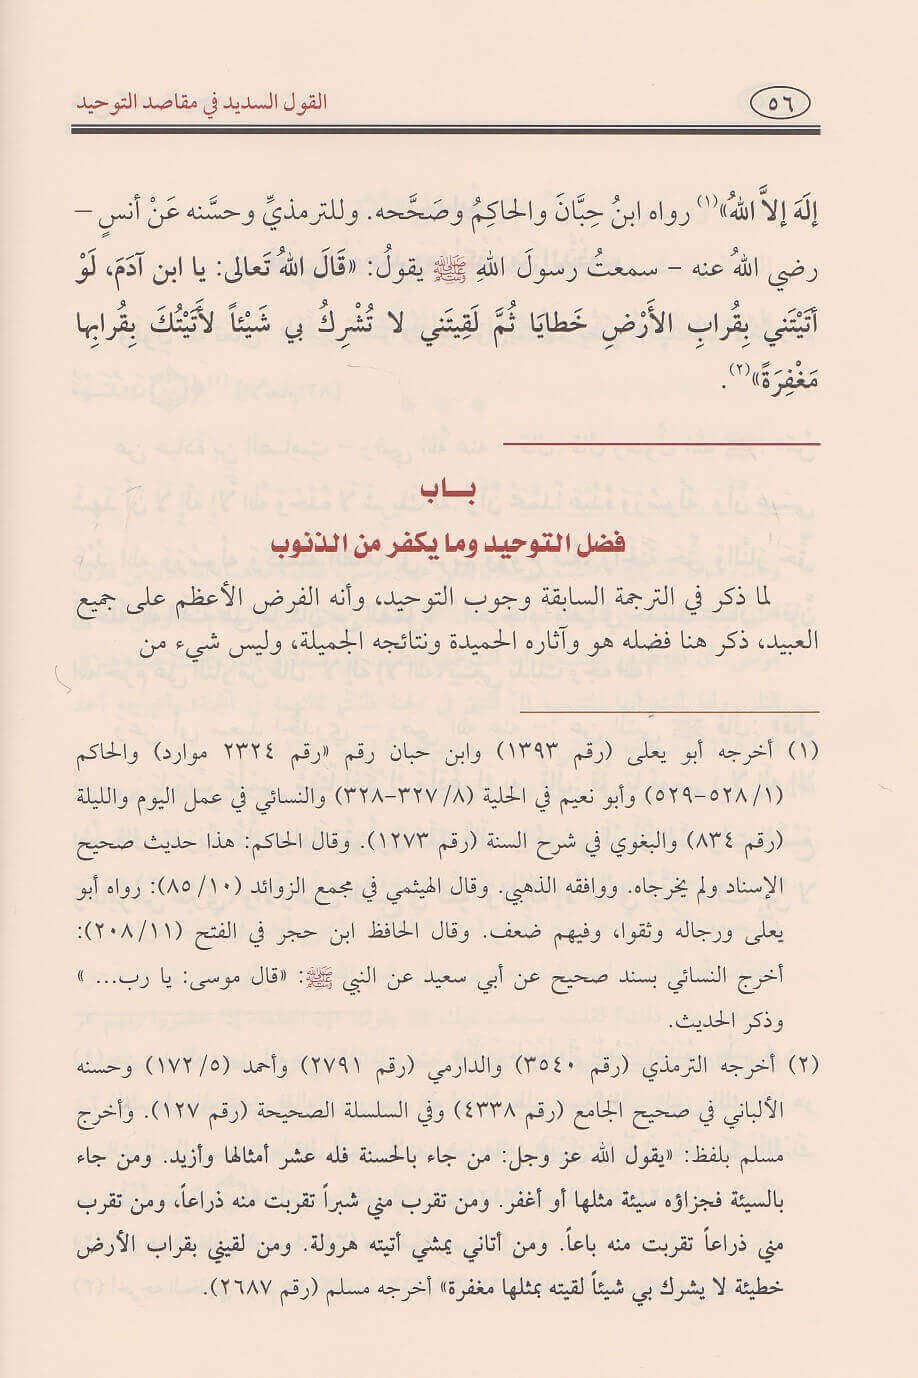 القول السديد في مقاصد التوحيد
٥٦
إلَهَ إلاَّ اللهُ»(١) رواه ابنُ حِبَّانَ والحاكِمُ وصَحَّحه. وللترمذيِّ وحسَّنه عَنْ أنسٍ –
رضي اللهُ عنه – سمعتُ رسولَ اللهِ ﷺ يقولُ: «قَالَ اللهُ تَعالى: يا ابن آدَمَ، لَوْ
أتَيْتَني بِقُرابِ الأَرْضِ خَطايَا ثُمَّ لَقِيتَني لا تُشْرِكُ بي شَيْئاً لأتَيْتُكَ بِقُرابِها
مَغْفِرَةً»(٢).
بـاب
فضل التوحيد وما يكفر من الذنوب
لما ذكر في الترجمة السابقة وجوب التوحيد، وأنه الفرض الأعظم على جميع
العبيد، ذكر هنا فضله هو وآثاره الحميدة ونتائجه الجميلة، وليس شيء من
(١) أخرجه أبو يعلى (رقم ١٣٩٣) وابن حبان رقم «رقم ٢٣٢٤ موارد) والحاكم
(١/ ٥٢٨-٥٢٩) وأبو نعيم في الحلية (٨/ ٣٢٧-٣٢٨) والنسائي في عمل اليوم والليلة
(رقم ٨٣٤) والبغوي في شرح السنة (رقم ١٢٧٣). وقال الحاكم: هذا حديث صحيح
الإسناد ولم يخرجاه. ووافقه الذهبي. وقال الهيثمي في مجمع الزوائد (١٠/ ٨٥): رواه أبو
يعلى ورجاله وثقوا، وفيهم ضعف. وقال الحافظ ابن حجر في الفتح (١١/ ٢٠٨):
أخرج النسائي بسند صحيح عن أبي سعيد عن النبي ﷺ: «قال موسى: يا رب... »
وذكر الحديث.
(٢) أخرجه الترمذي (رقم ٣٥٤٠) والدارمي (رقم ٢٧٩١) وأحمد (٥/ ١٧٢) وحسنه
الألباني في صحيح الجامع (رقم ٤٣٣٨) وفي السلسلة الصحيحة (رقم ١٢٧). وأخرج
مسلم بلفظ: «يقول الله عز وجل: من جاء بالحسنة فله عشر أمثالها وأزيد. ومن جاء
بالسيئة فجزاؤه سيئة مثلها أو أغفر. ومن تقرب مني شبراً تقربت منه ذراعاً، ومن تقرب
مني ذراعاً تقربت منه باعاً. ومن أتاني يمشي أتيته هرولة. ومن لقيني بقراب الأرض
خطيئة لا يشرك بي شيئاً لقيته بمثلها مغفرة» أخرجه مسلم (رقم ٢٦٨٧).